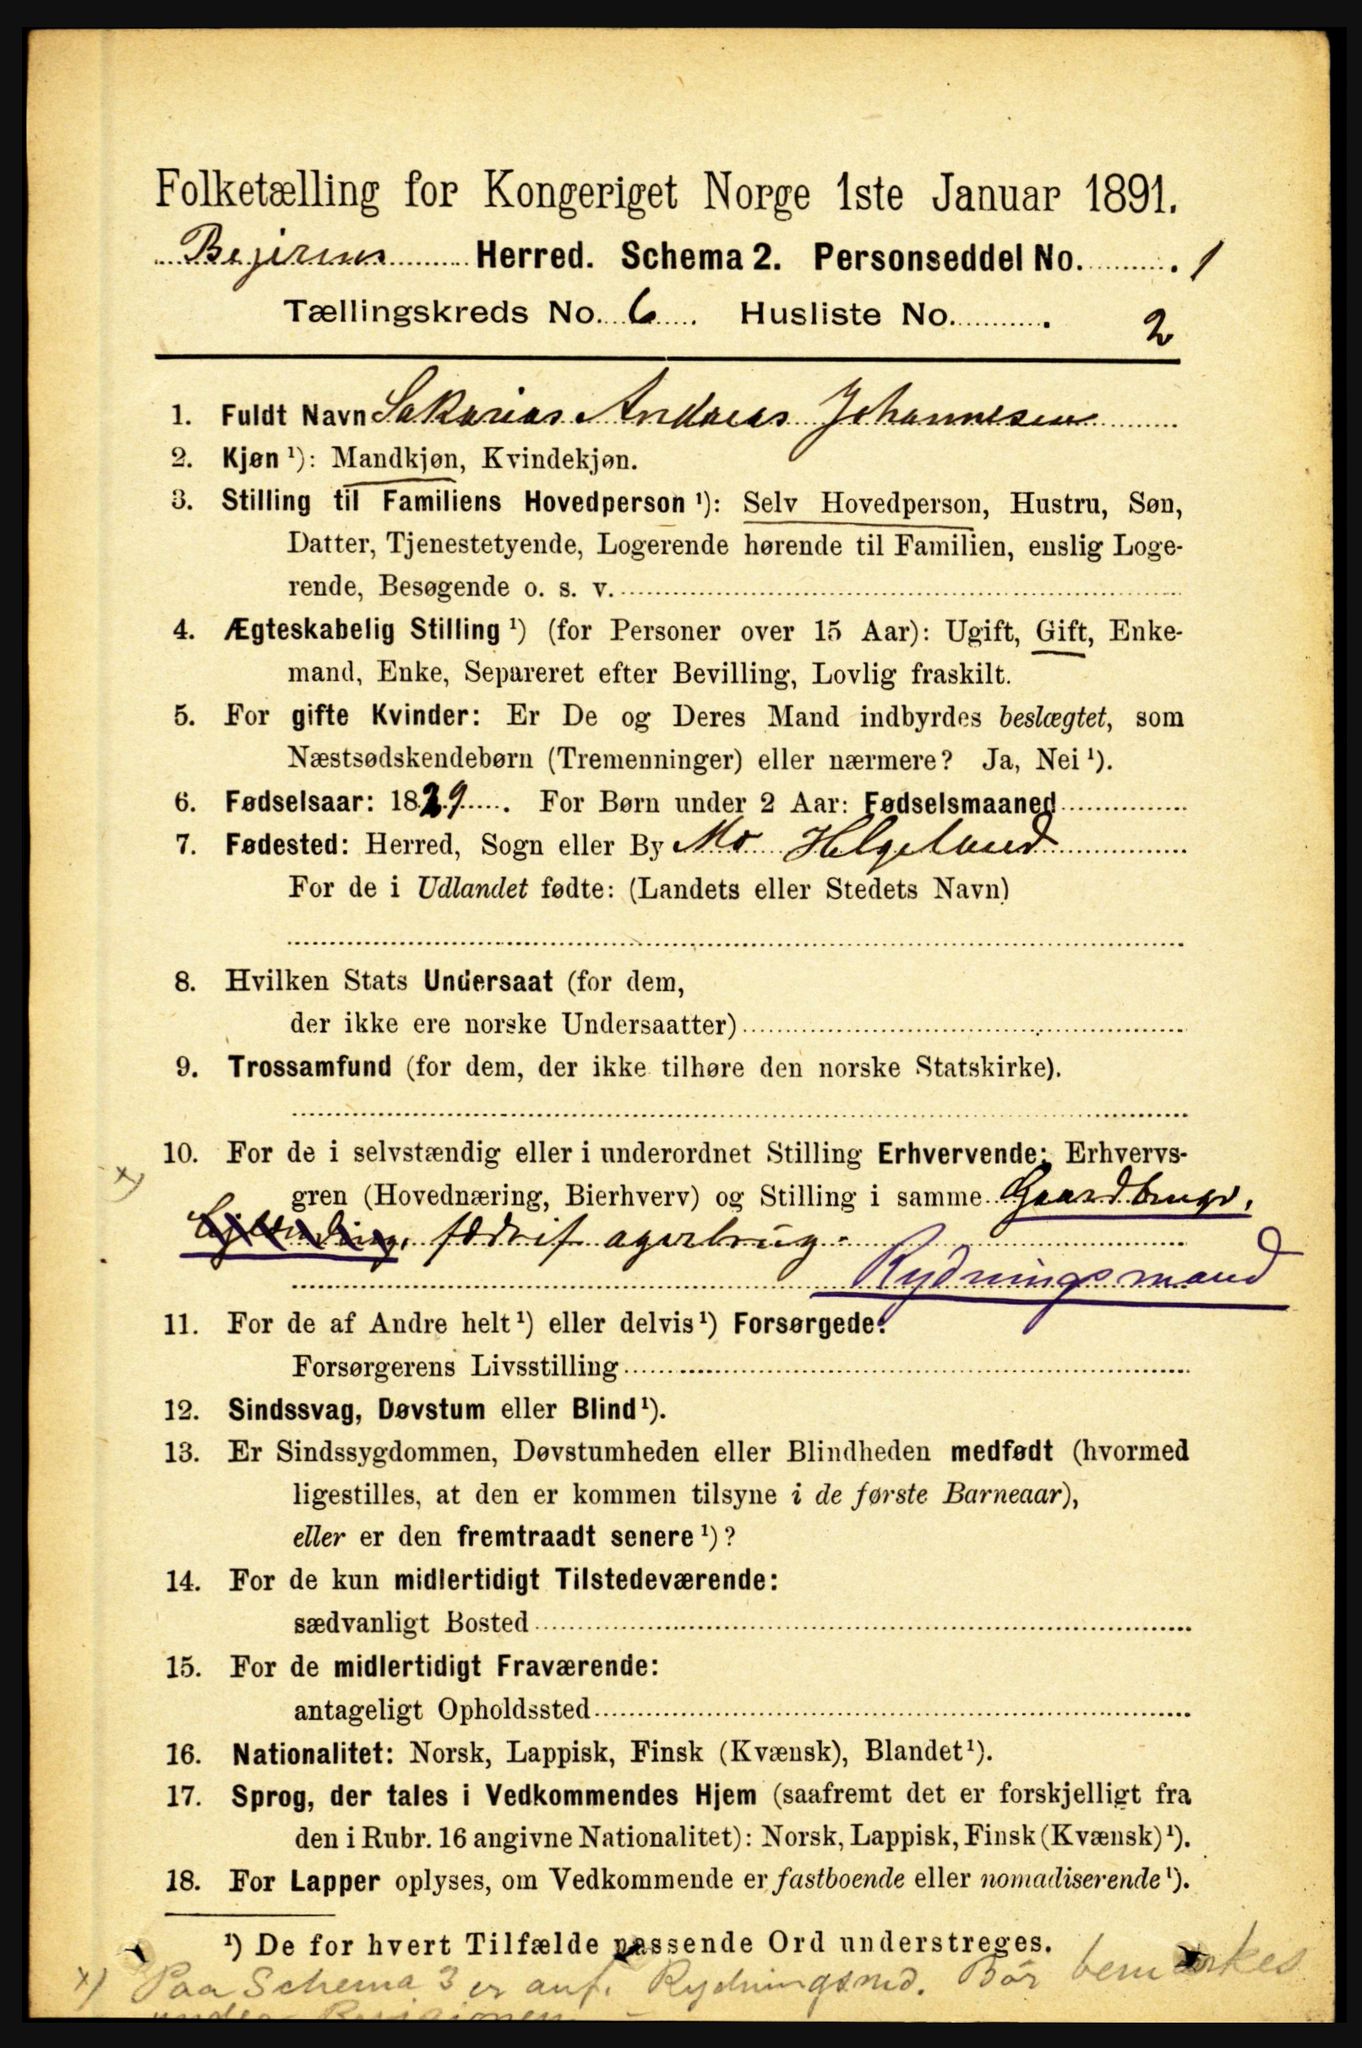 Folketælling for Kongeriget Norge 1ste Januar 1891.
Bejerens Herred. Schema 2. Personseddel No. 1
Tællingskreds No. 6. Husliste No. 2
1. Fuldt Navn Sakarias Andreas Johannesen
2. Kjøn ¹): Mandkjøn, Kvindekjøn.
3. Stilling til Familiens Hovedperson ¹): Selv Hovedperson, Hustru, Søn,
Datter, Tjenestetyende, Logerende hørende til Familien, enslig Loge-
rende, Besøgende o. s. v.
4. Ægteskabelig Stilling ¹) (for Personer over 15 Aar): Ugift, Gift, Enke-
mand, Enke, Separeret efter Bevilling, Lovlig fraskilt.
5. For gifte Kvinder: Er De og Deres Mand indbyrdes beslægtet, som
Næstsødskendebørn (Tremenninger) eller nærmere? Ja, Nei ¹).
6. Fødselsaar: 1829. For Børn under 2 Aar: Fødselsmaaned
7. Fødested: Herred, Sogn eller By Mo Helgeland
For de i Udlandet fødte: (Landets eller Stedets Navn)
8. Hvilken Stats Undersaat (for dem,
der ikke ere norske Undersaatter)
9. Trossamfund (for dem, der ikke tilhøre den norske Statskirke).
10. For de i selvstændig eller i underordnet Stilling Erhvervende: Erhvervs-
x) gren (Hovednæring, Bierhverv) og Stilling i samme Gaardbruger,
fædrif agerbrug.
Rydningsmand
11. For de af Andre helt ¹) eller delvis ¹) Forsørgede:
Forsørgerens Livsstilling
12. Sindssvag, Døvstum eller Blind ¹).
13. Er Sindssygdommen, Døvstumheden eller Blindheden medfødt (hvormed
ligestilles, at den er kommen tilsyne i de første Barneaar),
eller er den fremtraadt senere ¹)?
14. For de kun midlertidigt Tilstedeværende:
sædvanligt Bosted
15. For de midlertidigt Fraværende:
antageligt Opholdssted
16. Nationalitet: Norsk, Lappisk, Finsk (Kvænsk), Blandet ¹).
17. Sprog, der tales i Vedkommendes Hjem (saafremt det er forskjelligt fra
den i Rubr. 16 angivne Nationalitet): Norsk, Lappisk, Finsk (Kvænsk) ¹).
18. For Lapper oplyses, om Vedkommende er fastboende eller nomadiserende ¹).
¹) De for hvert Tilfælde passende Ord understreges.
x) Paa Schema 3 er anf. Rydningsmd. Bør bemærkes
under Revisionen